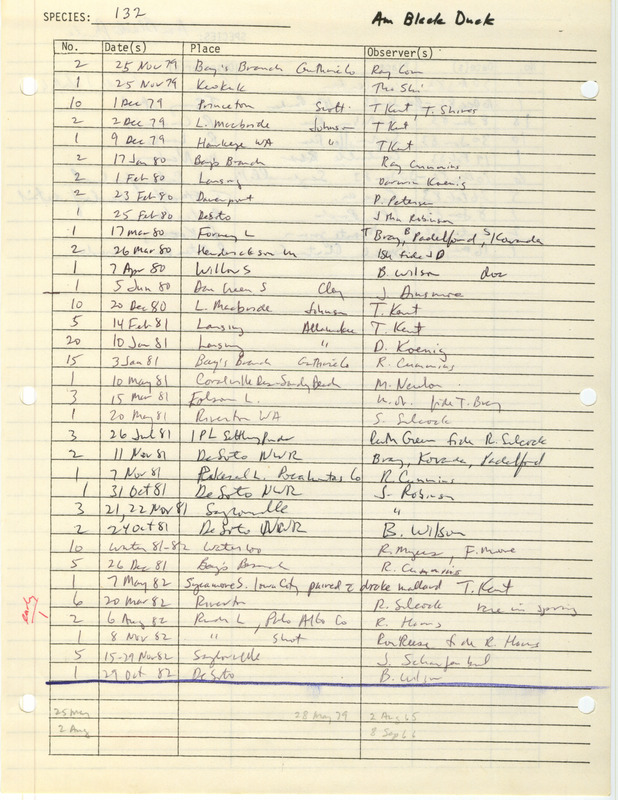 SPECIES: 132 Am Black Duck
No. Date(s) Place Observer(s)
2 25 Nov 79 Bay's Branch Guthrie Co Ray Cum
1 25 Nov 79 Keokuk
10 1 Dec 79 Princeton Scott T Kent, T. Shires
2 2 Dec 79 L. Macbride Johnson T Kent
1 9 Dec 79 Hawkeye WA " T Kent
2 17 Jan 80 Bays Branch Ray Cummins
2 1 Feb 80 Lansing Darwin Koenig
2 23 Feb 80 Davenport P. Petersen
1 25 Feb 80 DeSoto John Robinson
1 17 Mar 80 Forney L T Bray, B Padelford, S Kovanda
2 26 Mar 80 Hendrickson M fide JD
1 7 Apr 80 Willow S B. Wilson doc
1 5 Jun 80 Dan Green S Clay J Dinsmore
10 20 Dec 80 L. Macbride Johnson T. Kent
5 14 Feb 81 Lansing Allamakee T. Kent
20 10 Jan 81 Lansing " D. Koenig
15 3 Jan 81 Bay's Branch Guthrie Co R. Cummins
1 10 May 81 Coralville Res-Sandy Beach M. Newlon
3 15 Mar 81 Folsom L. fide T. Bray
1 20 May 81 Riverton WA S. Silcock
3 26 Jul 81 IPL Settling Ponds Ruth Green fide R. Silcock
2 11 Nov 81 DeSoto NWR Bray, Kovanda, Padelford
1 7 Nov 81 L. Pocahontas Co R. Cummins
1 31 Oct 81 DeSoto NWR J. Robinson
3 21, 22 Nov 81 Saylorville "
2 24 Oct 81 DeSoto NWR B. Wilson
10 Winter 81-82 Waterloo R. Myers, F. Moore
5 26 Dec 81 Bay's Branch R. Cummins
1 7 May 82 Sycamore S. Iowa City paired c drake mallard T. Kent
6 20 Mar 82 Riverton R. Silcock rare in spring
2 6 Aug 82 Rush L, Palo Alto Co R. Harms
1 8 Nov 82 " shot Ron Reese fide R. Harms
5 15-29 Nov 82 Saylorville J. Schaufenbuel
1 29 Oct 82 DeSoto B. Wilson
25 May 28 May 79 2 Aug 65
2 Aug 8 Sep 66